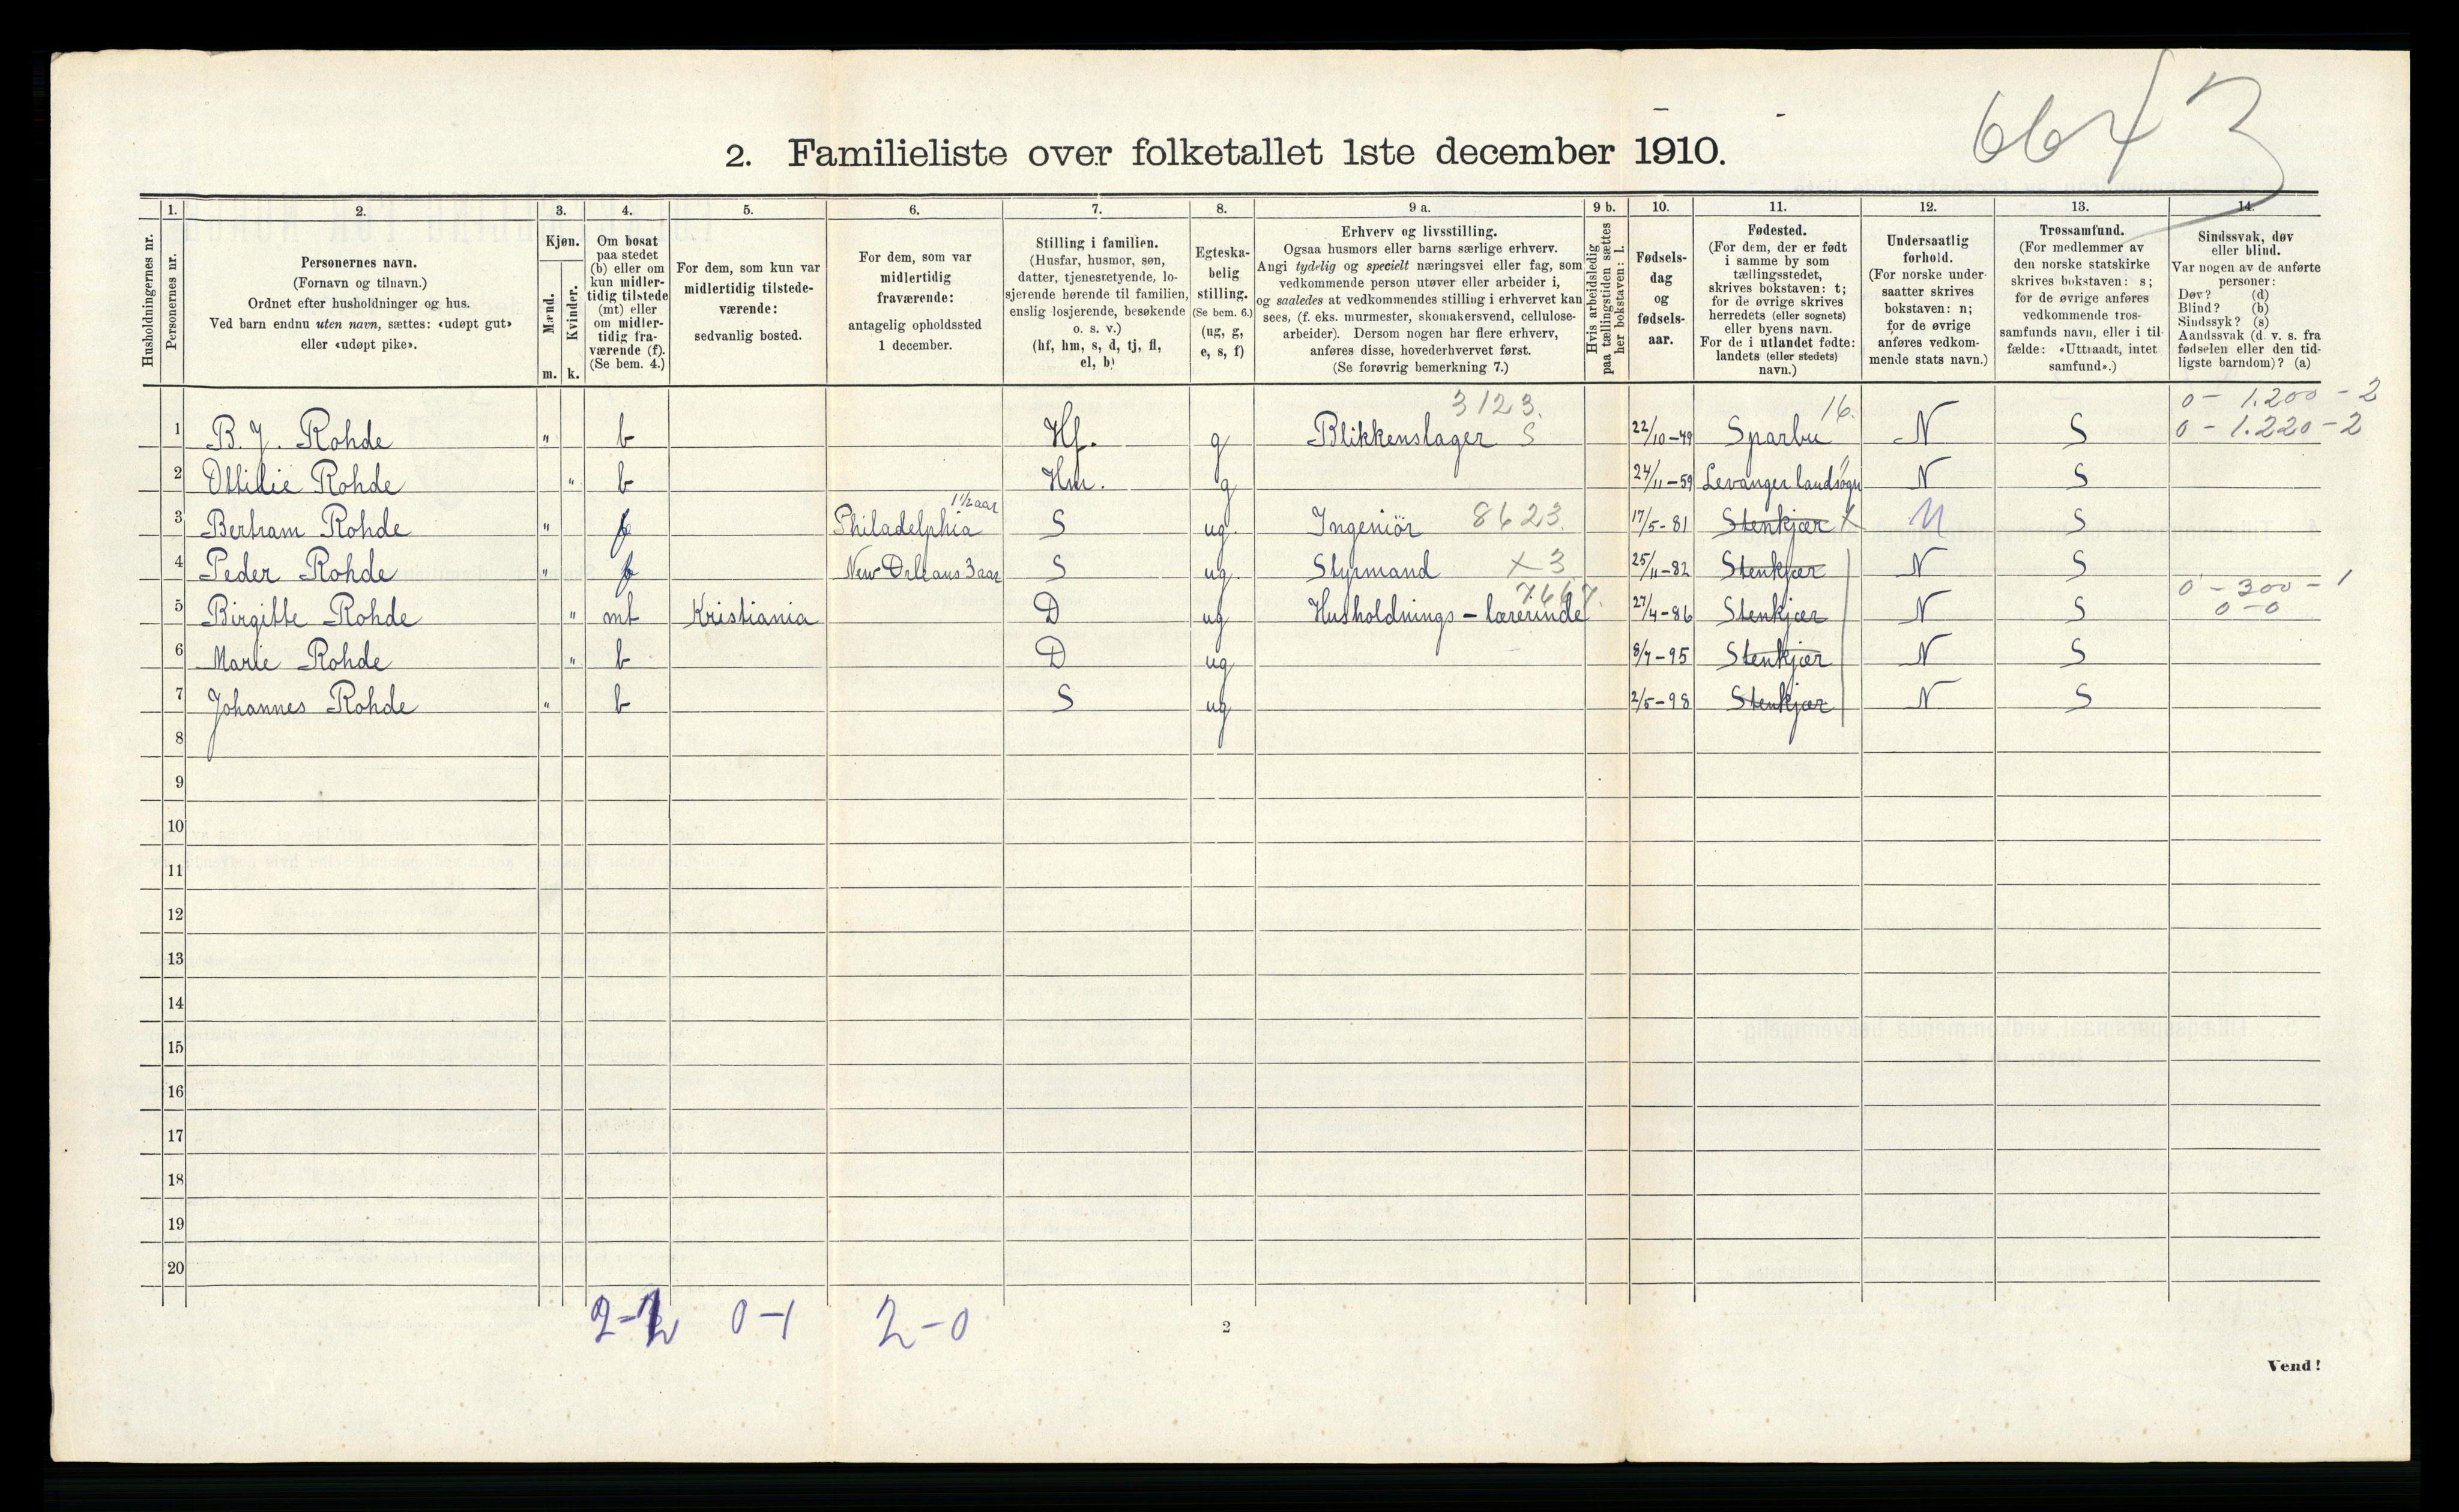 6643
2. Familieliste over folketallet 1ste december 1910.
1. 2. 3. 4. 5. 6. 7. 8. 9 a. 9 b. 10. 11. 12. 13. 14.
Husholdningernes nr.
Personernes nr.
Personernes navn.
(Fornavn og tilnavn.)
Ordnet efter husholdninger og hus.
Ved barn endnu uten navn, sættes: «udøpt gut»
eller «udøpt pike».
Kjøn.
Mænd.
Kvinder.
m. k.
Om bosat
paa stedet
(b) eller om
kun midler-
tidig tilstede
(mt) eller
om midler-
tidig fra-
værende (f).
(Se bem. 4.)
For dem, som kun var
midlertidig tilstede-
værende:
sedvanlig bosted.
For dem, som var
midlertidig
fraværende:
antagelig opholdssted
1 december.
Stilling i familien.
(Husfar, husmor, søn,
datter, tjenestetyende, lo-
sjerende hørende til familien,
enslig losjerende, besøkende
o. s. v.)
(hf, hm, s, d, tj, fl,
el, b)
Egteska-
belig
stilling.
(Se bem. 6.)
(ug, g,
e, s, f)
Erhverv og livsstilling.
Ogsaa husmors eller barns særlige erhverv.
Angi tydelig og specielt næringsvei eller fag, som
vedkommende person utøver eller arbeider i,
og saaledes at vedkommendes stilling i erhvervet kan
sees, (f. eks. murmester, skomakersvend, cellulose-
arbeider). Dersom nogen har flere erhverv,
anføres disse, hovederhvervet først.
(Se forøvrig bemerkning 7.)
Hvis arbeidsledig
paa tællingstiden sættes
her bokstaven: l.
Fødsels-
dag
og
fødsels-
aar.
Fødested.
(For dem, der er født
i samme by som
tællingsstedet,
skrives bokstaven: t;
for de øvrige skrives
herredets (eller sognets)
eller byens navn.
For de i utlandet fødte:
landets (eller stedets)
navn.)
Undersaatlig
forhold.
(For norske under-
saatter skrives
bokstaven: n;
for de øvrige
anføres vedkom-
mende stats navn.)
Trossamfund.
(For medlemmer av
den norske statskirke
skrives bokstaven: s;
for de øvrige anføres
vedkommende tros-
samfunds navn, eller i til-
fælde: «Uttraadt, intet
samfund».)
Sindssvak, døv
eller blind.
Var nogen av de anførte
personer:
Døv? (d)
Blind? (b)
Sindssyk? (s)
Aandssvak (d. v. s. fra
fødselen eller den tid-
ligste barndom)? (a)
3123. 16. 0 - 1.200 - 2
1 B. J. Rohde " b Hf. g Blikkenslager S 22/10-49 Sparbu N S 0 - 1.220 - 2
2 Ottilie Rohde " b Hm. g 24/11-59 Levanger landsogn N S
1 1/2 aar
3 Bertram Rohde " f Philadelphia S ug. Ingeniör 8623. 17/5-81 Stenkjær X N S
4 Peder Rohde " f New Orleans 3 aar S ug. Styrmand X3 25/11-82 Stenkjær N S
7667. 0 - 300 - 1
5 Birgitte Rohde " mt Kristiania D ug Husholdnings-lærerinde 27/4-86 Stenkjær N S 0-0
6 Marie Rohde " b D ug 8/7-95 Stenkjær N S
7 Johannes Rohde " b S ug 2/5-98 Stenkjær N S
8
9
10
11
12
13
14
15
16
17
18
19
20
2-2 0-1 2-0
2
Vend!